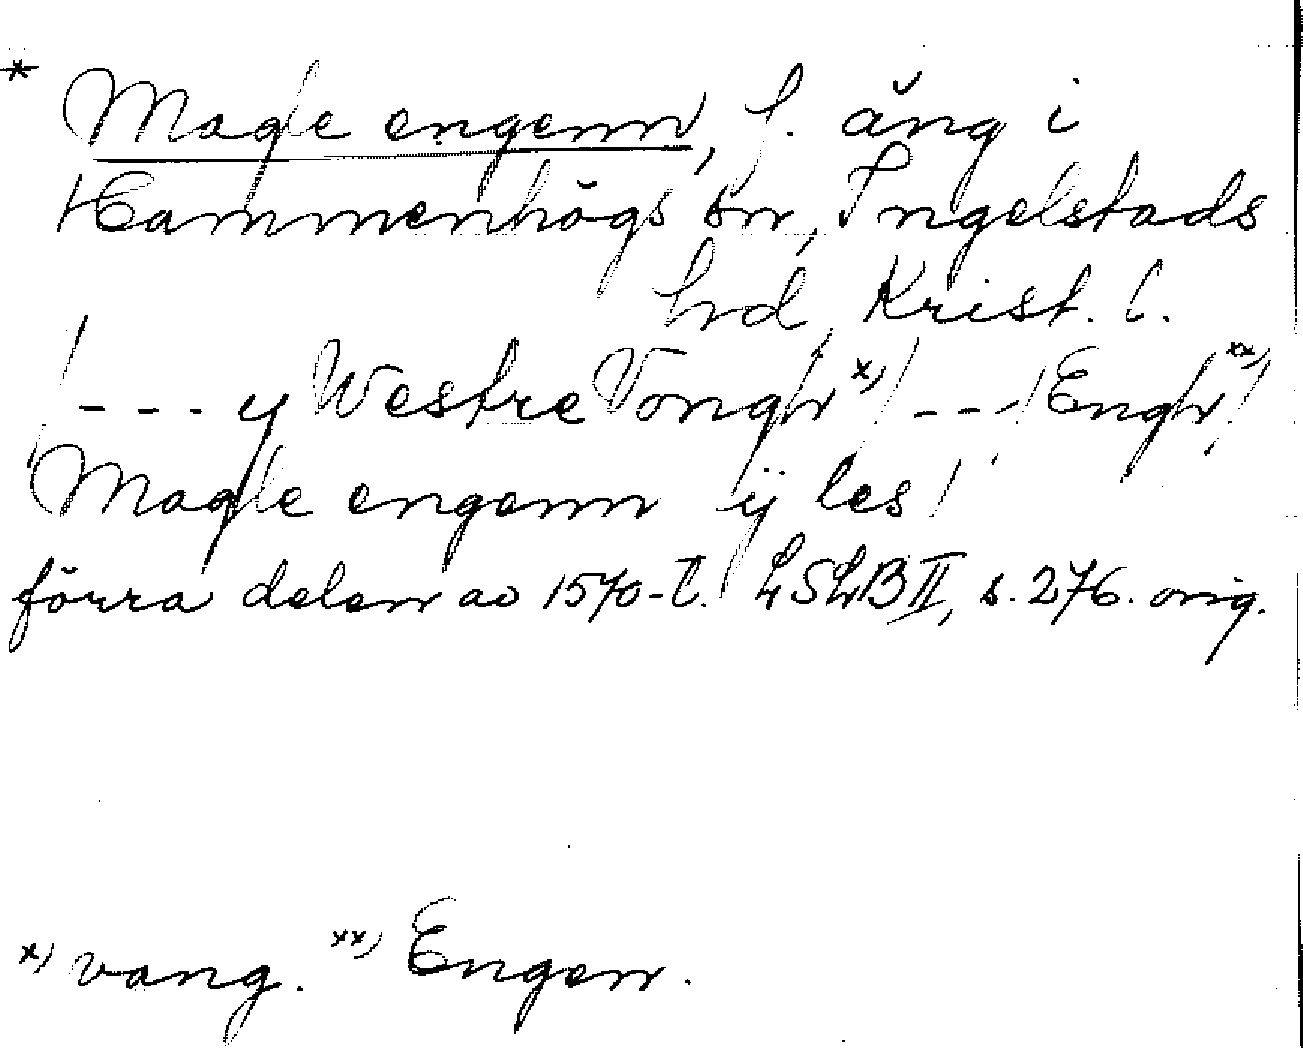 * Magle engenn, f. äng i
Hammenhögs sn, Ingelstads
hd, Krist. l.
/ - - - y Westre Vongh x) / - - - / Engh xx) /
Magle engenn ÿ les /
förra delen av 1570-t. LSLB II, s. 276. orig.
x) vang. xx) Engen.